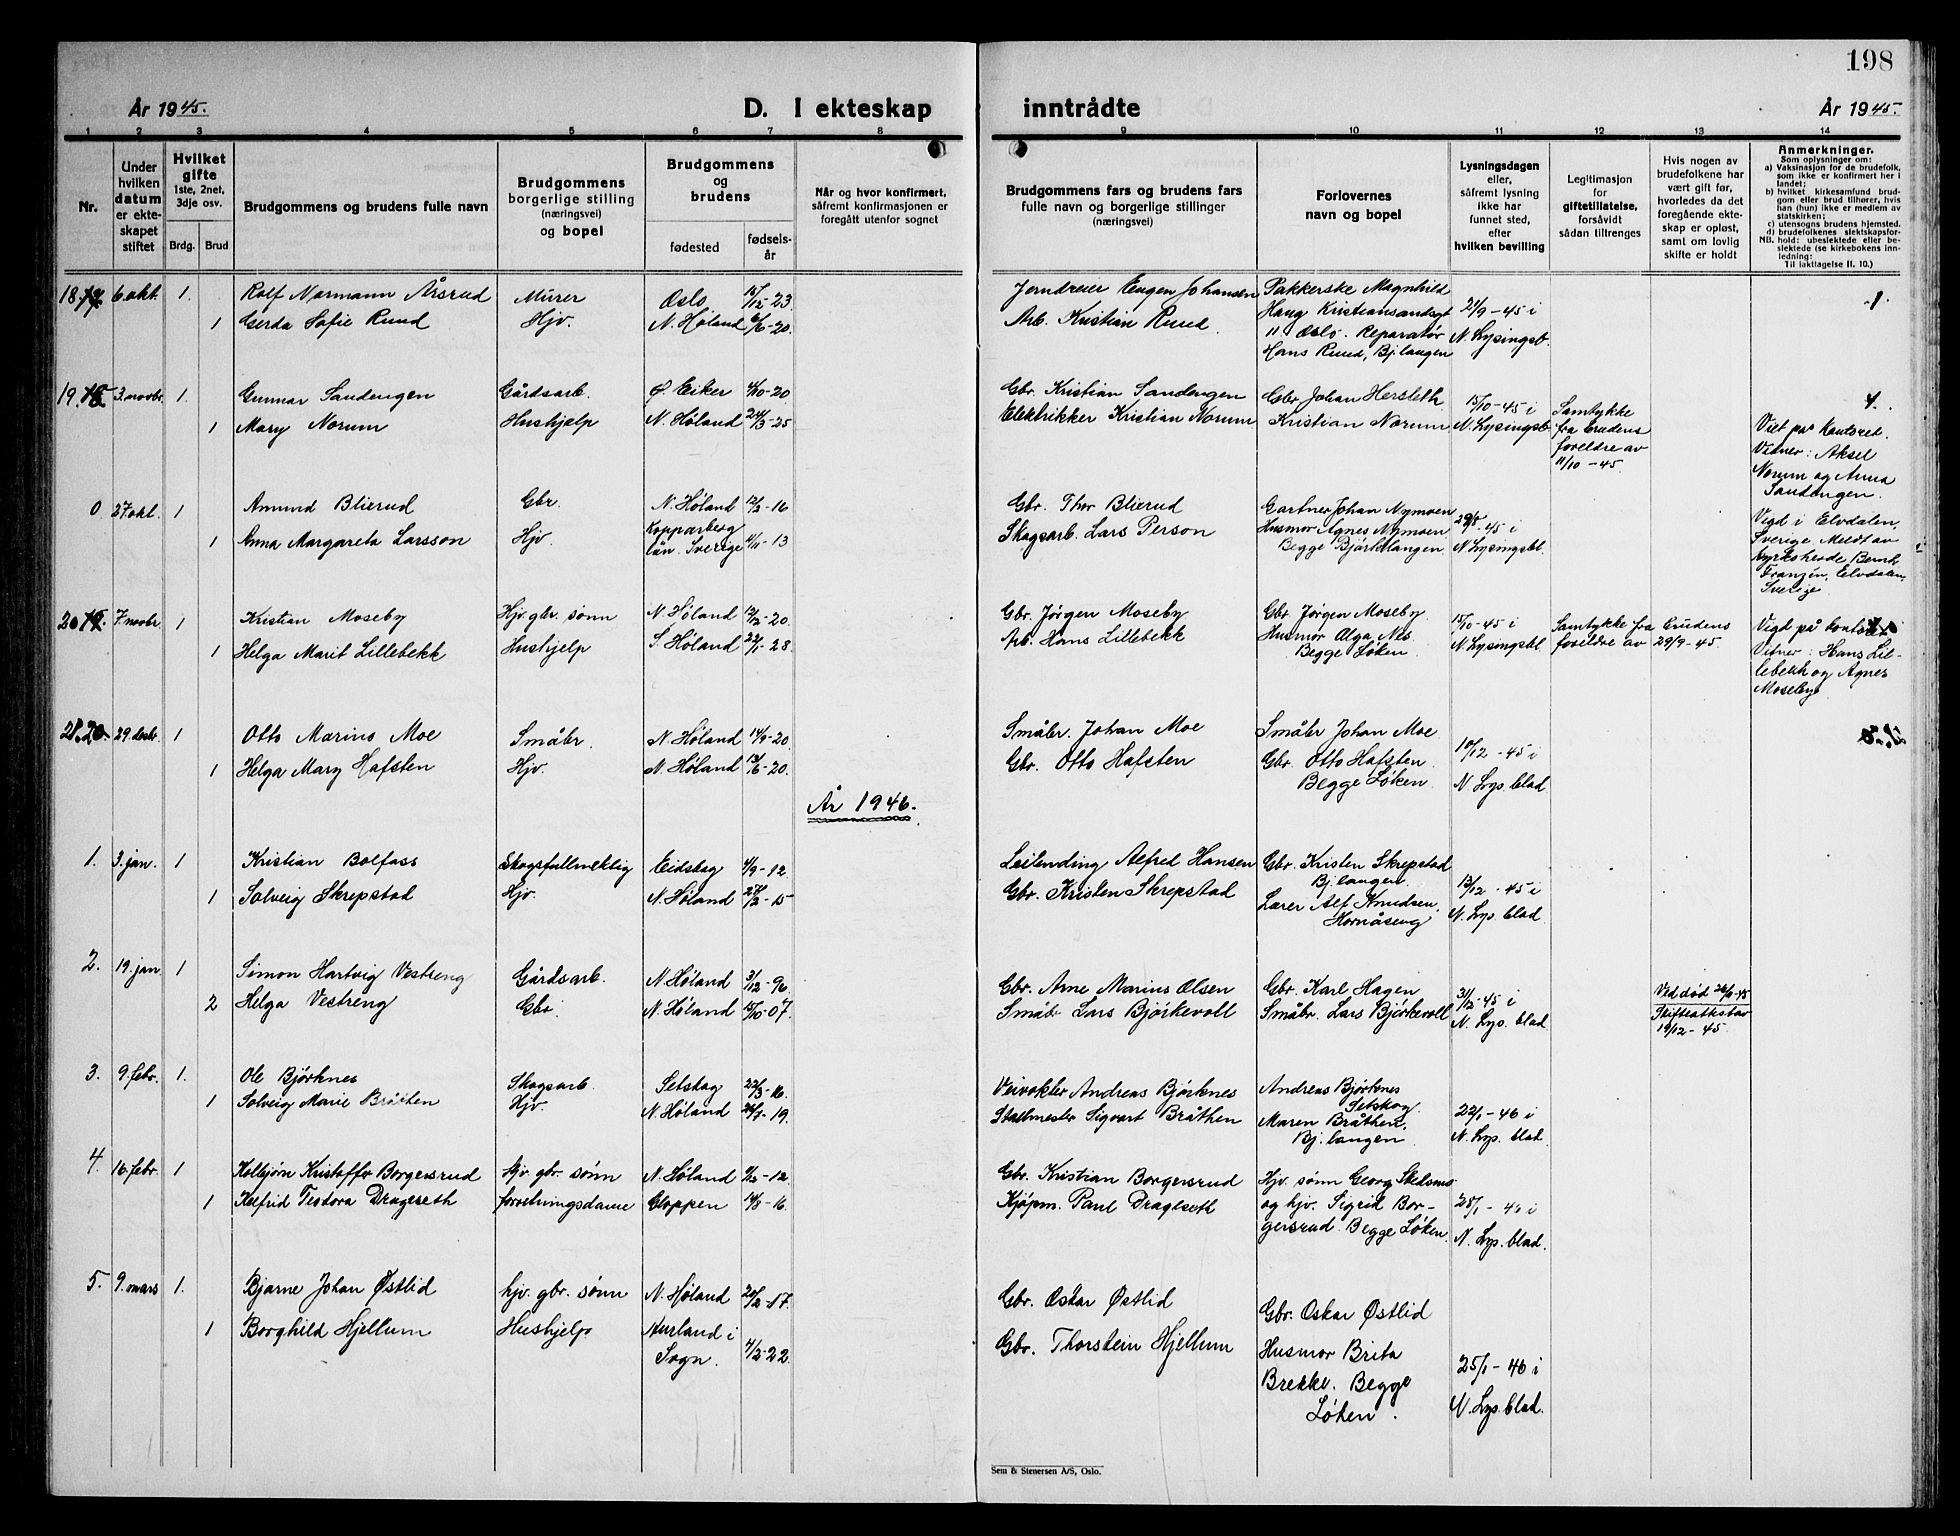 198
År 1945.
D. I ekteskap inntrådte
År 1945.
1 2 3 4 5 6 7 8 9 10 11 12 13 14
Nr.
Under hvilken datum er ekteskapet stiftet
Hvilket gifte
1ste, 2net, 3dje osv.
Brdg. Brud
Brudgommens og brudens fulle navn
Brudgommens borgerlige stilling (næringsvei) og bopel
Brudgommens og brudens
fødested
fødselsår
Når og hvor konfirmert, såfremt konfirmasjonen er foregått utenfor sognet
Brudgommens fars og brudens fars fulle navn og borgerlige stillinger (næringsvei)
Forlovernes navn og bopel
Lysningsdagen eller, såfremt lysning ikke har funnet sted, efter hvilken bevilling
Legitimasjon for giftetillatelse, forsåvidt sådan tiltrenges
Hvis nogen av brudefolkene har vært gift før, hvorledes da det foregående ekteskap er opløst, samt om lovlig skifte er holdt
Anmerkninger.
Som oplysninger om:
a) Vaksinasjon for de brudefolk, som ikke er konfirmert her i landet;
b) hvilket kirkesamfund brudgom eller brud tilhører, hvis han (hun) ikke er medlem av statskirken;
c) utensogns brudens hjemsted.
d) brudefolkenes slektskapsforhold: ubeslektede eller beslektede (se kirkebokens innledning:
NB. Til iakttagelse II. 10.)
18. 6. okt. 1. Rolf Normann Årsrud Murer Oslo 15/12-23 Jerndreier Eugen Johansen Pakkerske Magnhild 1.
1 Gerda Sofie Ruud Hjv. N. Høland 6/6-20. Arb. Kristian Ruud. Haug Kristiansandsgt 21/9-45 i
11 Oslo. Reparatør N. Lysingsb.
Hans Ruud, Bj.langen
19. 3. novbr. 1. Gunnar Sandengen Gårdsarb. Ø. Eiker 4/10-20 Gbr. Kristian Sandengen Gbr. Johan Hersleth 15/10-45 i Samtykke
1 Mary Norum Hushjelp N. Høland 24/3-25 Elektrikker Kristian Norum Kristian Norum N. Lysingsb. fra brudens foreldre av 11/10-45. Viet på kontoret. Vidner: Aksel Norum og Anna Sandengen.
0 27 okt. 1 Amund Blierud Gbr. N. Høland 12/2-16 Gbr. Thor Blierud Gartner Johan Nymoen 29/8-45 i
1 Anna Margareta Larsson Hjv. Kopparberg län. Sverige 4/11-13 Skogsarb. Lars Person Husmor Agnes Nymoen Begge Bjørkelangen N. Lysingsbl. Vigd i Elvdalen, Sverige. Meldt av kyrkoherde Bernh. Franzén, Elvdalen, Sverige.
20 7. novbr 1 Kristian Moseby Hjv. gbr. sønn N. Høland 12/2-20. Gbr. Jørgen Moseby Gbr. Jørgen Moseby 15/10-45 i Samtykke fra brudens
1 Helga Marit Lillebekk Hushjelp S. Høland 22/1-28 Arb. Hans Lillebekk Husmor Olga Nes Begge Løken. N. Lysingsbl. foreldre av 29/9-45. Vigd på kontoret Vitner: Hans Lillebekk og Agnes Moseby.
21. 29. desbr. 1 Otto Marino Moe Småbr. N. Høland 14/9-20 Småbr. Johan Moe Småbr Johan Moe
1 Helga Mary Hafsten Hjv. N. Høland 13/6-20. Gbr. Otto Hafsten Gbr. Otto Hafsten. 10/12-45 i
Begge Løken N. Lys. blad
År 1946.
1. 3. jan. 1 Kristian Bolfass Skogsfullmektig Eidskog 4/9-12. Leilending Alfred Hansen Gbr. Kristen Skrepstad
1 Solveig Skrepstad Hjv. N. Høland 27/2-15 Gbr. Kristen Skrepstad Bj.langen. 13/12-45 i
Lærer Alf Knudsen, Hornåseng N. Lys. blad
2. 19. jan 1 Simon Hartvig Vestreng Gårdsarb. N. Høland 3/12-96. Gbr. Arne Marius Olsen Gbr. Karl Hagen 31/12-45 i
2 Helga Vestreng Gbr. N. Høland 15/10-07 Småbr. Lars Bjørkevoll Småbr. Lars Bjørkevoll N. Lys. blad Ved død Skifteattest av 19/12-45
3. 9. febr. 1. Ole Bjørknes Skogsarb. Setskog 22/3-16. Veivokter Andreas Bjørknes Andreas Bjørknes Setskog
1 Solveig Marie Bråten Hjv. N. Høland 26/7-19. Stallmester Sigvart Bråthen Maren Bråthen, Bj.langen 22/1-46 i N. Lys. blad.
4. 16. febr. 1 Kolbjørn Kristoffer Borgersrud Hjv gbr. sønn N. Høland 11/2-12 Gbr. Kristian Borgersrud Hjv. sønn Georg
1 Kelfrid Teodora Drageseth forretningsdame Gloppen 14/8-16. Kjøpm. Paul Drageseth og hjv. Sigrid Borgersrud. Begge Løken. 28/1-46 i N. Lys. blad.
5. 9. mars 1. Bjarne Johan Østlid hjv. gbr. sønn N. Høland 20/2-17. Gbr. Oskar Østlid Gbr. Oskar Østlid
1 Borghild Hjellum Hushjelp Aurland i Sogn. 4/2-22. Gbr. Thorstein Hjellum Husmor Brita Brekke. Begge Løken. 25/1-46 i N. Lys. blad.
Sem & Stenersen A/S, Oslo.